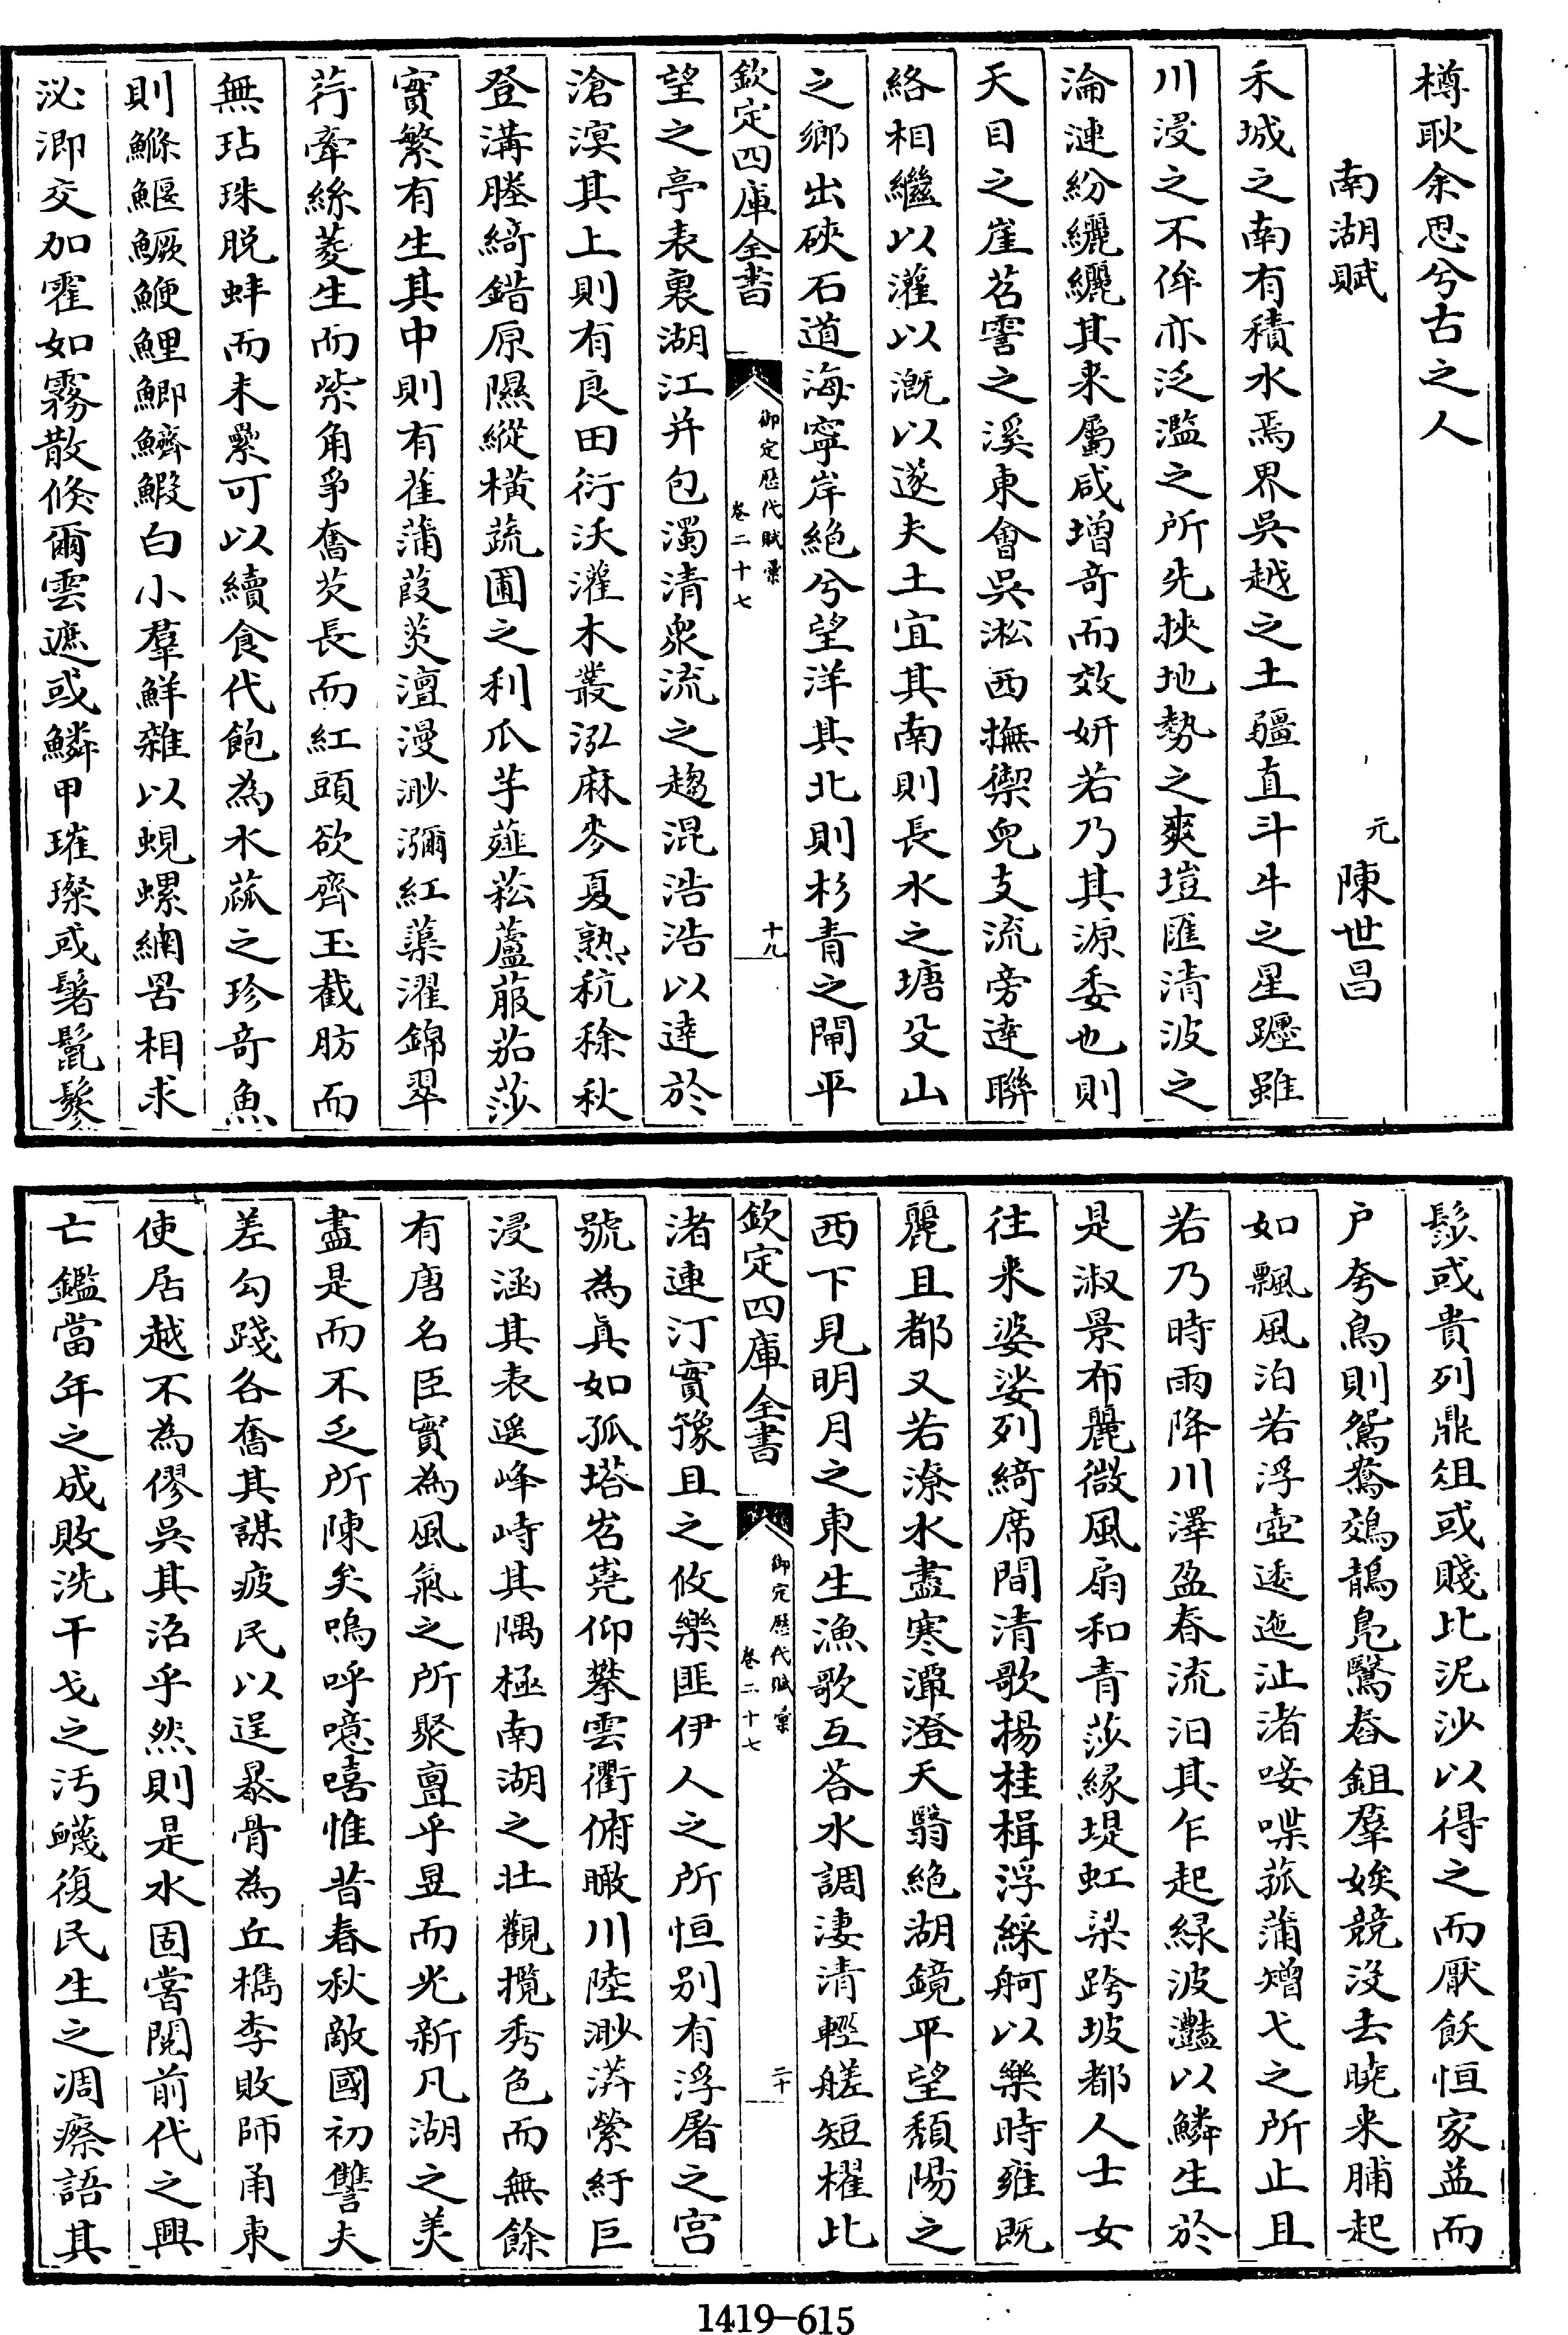 樽耿余思兮古之人
南湖賦
元
陳世昌
禾城之南有積水焉界吳越之土疆直斗牛之星躔雖
川浸之不侔亦泛濫之所先挾地勢之爽塏匯清波之
淪漣紛纚纚其来屬咸增竒而效妍若乃其源委也則
天目之崖苕霅之溪東會吳淞西撫禦兒支流旁達聯
絡相繼以灌以溉以遂夫土宜其南則長水之塘殳山
之鄉出硤石道海寧岸絶兮望洋其北則杉青之閘平
欽定四庫全書
御定歴代賦彙
卷二十七
十九
望之亭表裏湖江并包濁清衆流之趨混浩浩以達於
滄溟其上則有良田衍沃灌木叢泓麻麥夏熟秔稌秋
登溝塍綺錯原隰縱橫蔬圃之利瓜芋薤菘蘆菔茄莎
實繁有生其中則有萑蒲葭菼澶漫渺瀰紅蕖濯錦翠
荇牽絲菱生而紫角爭奮芡長而紅頭欲齊玉截肪而
無玷珠脱蚌而未纍可以續食代飽為水蓏之珍竒魚
則鰷鰋鱖鯁鯉鯽鱭鰕白小羣鮮雜以蜆螺網罟相求
泌㴉交加霍如霧散倐爾雲遮或鱗甲璀璨或鬐鬣鬖
髿或貴列鼎俎或賤比泥沙以得之而厭飫恒家益而
户夸鳥則鴛鴦鵁鶄鳬鷖舂鉏羣娭競没去曉来脯起
如飄風泊若浮壺逶迤沚渚唼喋菰蒲矰弋之所止且
若乃時雨降川澤盈春流汨其乍起緑波灎以鱗生於
是淑景布麗微風扇和青莎緣堤虹梁跨坡都人士女
往来婆娑列綺席間清歌揚桂楫浮綵舸以樂時雍既
麗且都又若潦水盡寒潭澄天翳絶湖鏡平望頽陽之
西下見明月之東生漁歌互荅水調淒清輕艖短櫂此
欽定四庫全書
御定歴代賦彙
卷二十七
二十
渚連汀實豫且之攸樂匪伊人之所恒别有浮屠之宫
號為眞如孤塔岧嶤仰攀雲衢俯瞰川陸渺漭縈紆巨
浸涵其表遥峰峙其隅極南湖之壯觀攬秀色而無餘
有唐名臣實為風氣之所聚亶乎昱而光新凡湖之美
盡是而不乏所陳矣嗚呼噫嘻惟昔春秋敵國初讐夫
差勾踐各奮其謀疲民以逞暴骨為丘檇李敗師甬東
使居越不為僇吳其沼乎然則是水固嘗閲前代之興
亡鑑當年之成敗洗干戈之汚衊復民生之凋瘵語其
1419-615